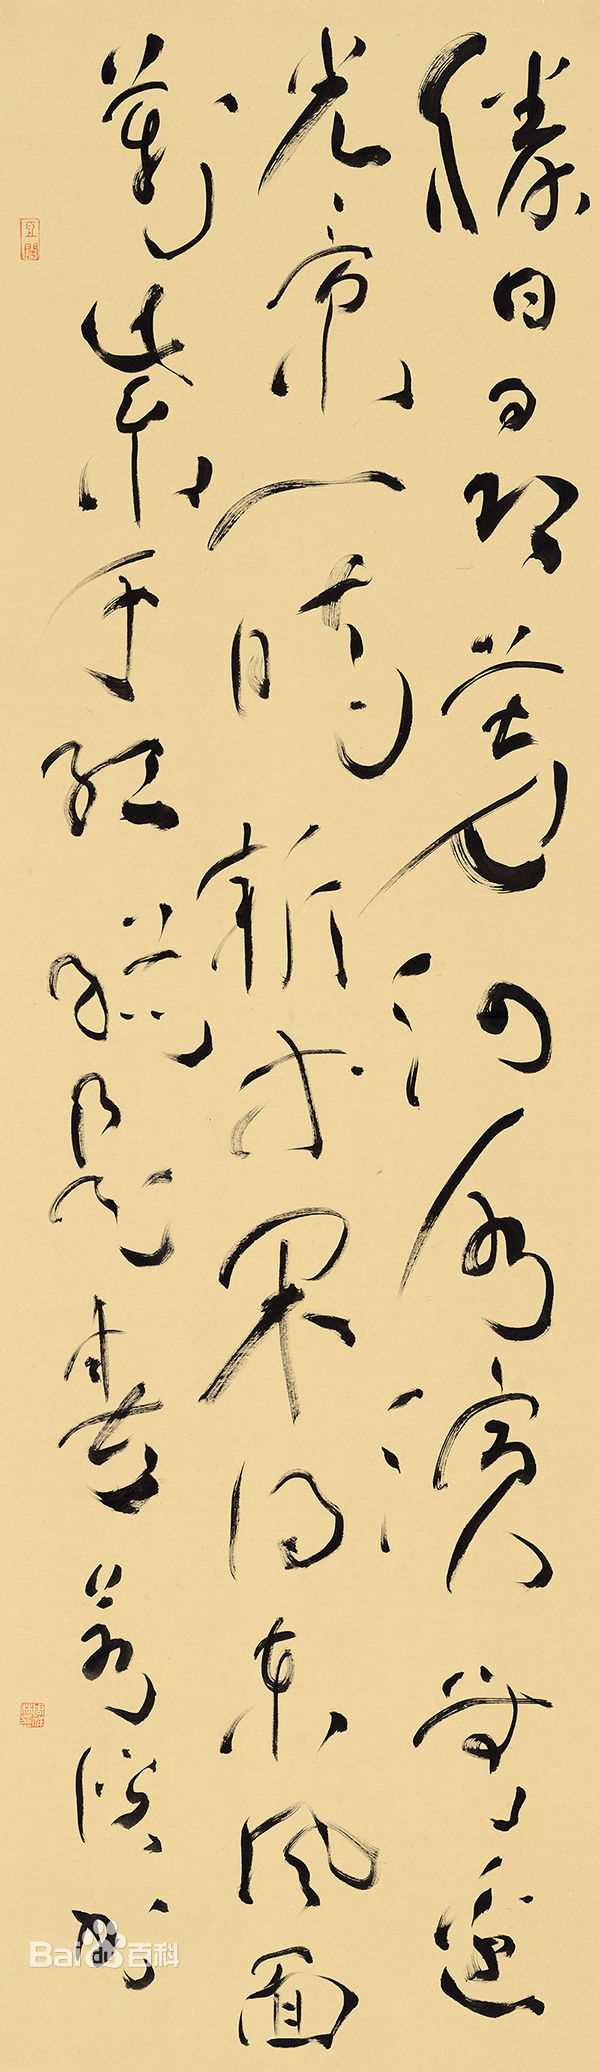 勝日尋芳泗水濱無邊
光景一時新等閑得東風面
萬紫千紅總是春
Bai du 百科